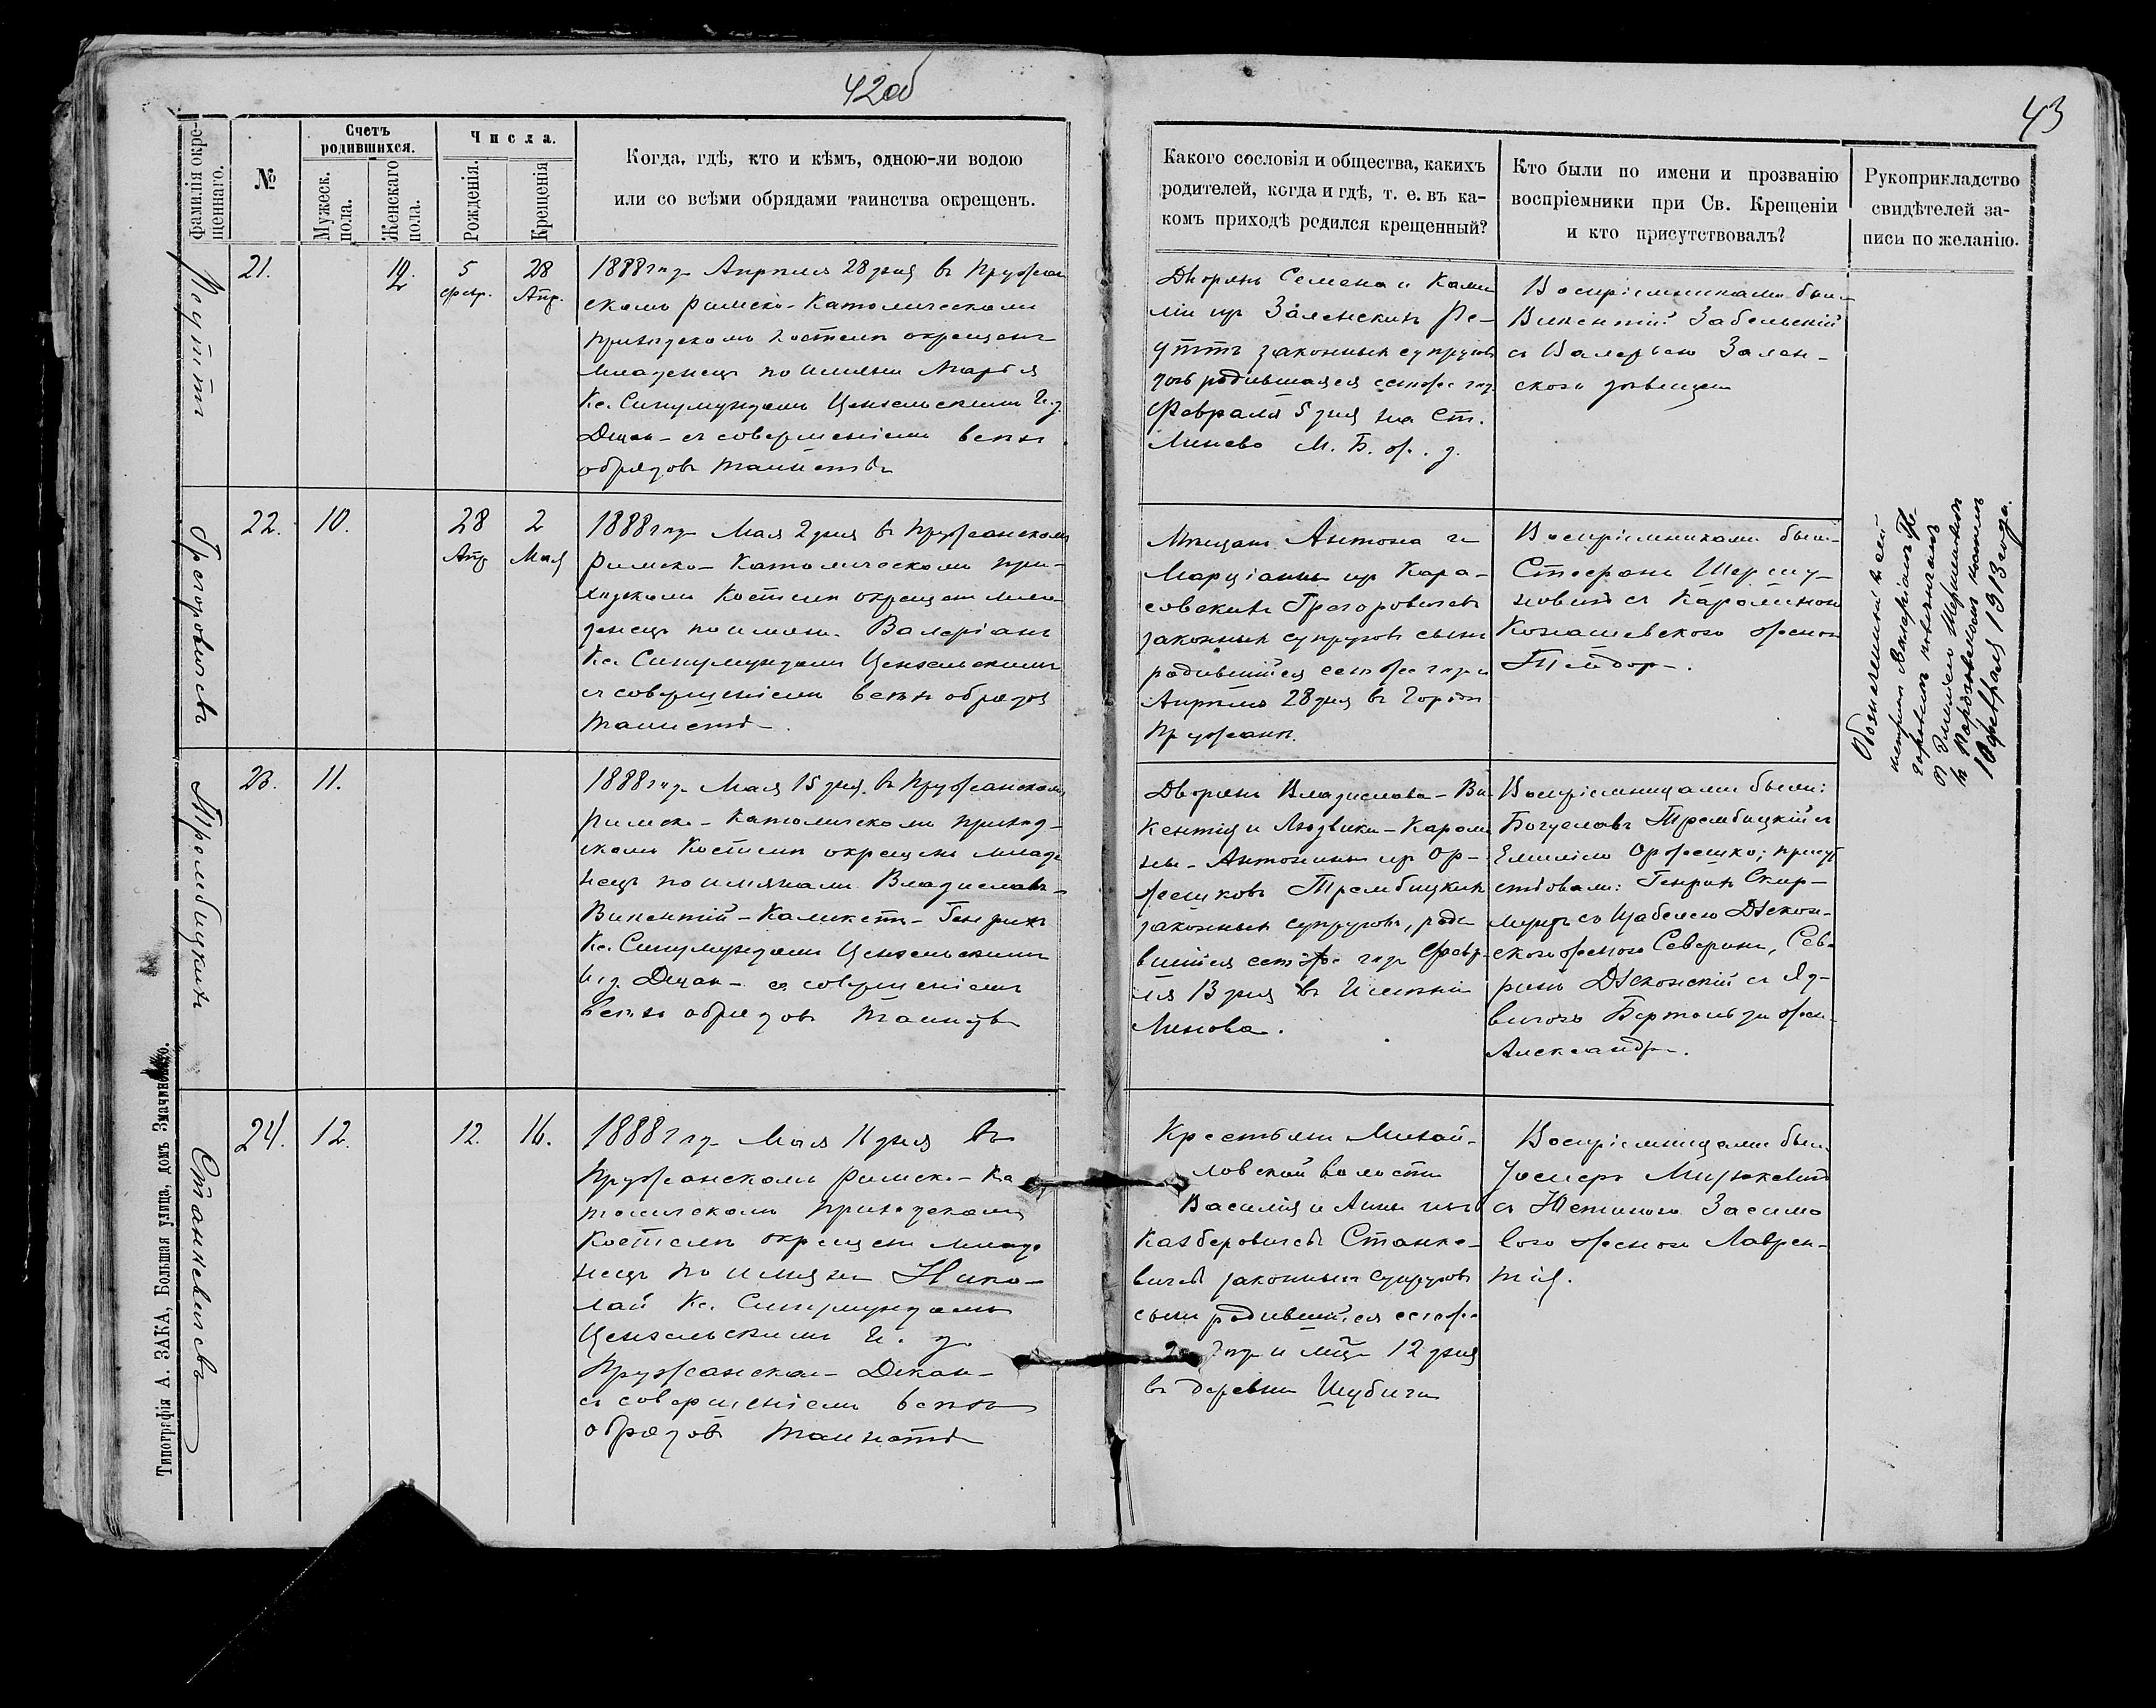 42об
43
Фамилія окре-
щеннаго.
№
Счетъ
родившихся.
Мужеск.
пола.
Женскаго
пола.
Числа.
Рожденія.
Крещенія
Когда, гдѣ, кто и кѣмъ, одною-ли водою
или со всѣми обрядами таинства окрещенъ.
Какого сословія и общества, какихъ
родителей, когда и гдѣ, т. е. въ ка-
комъ приходѣ родился крещенный?
Кто были по имени и прозванію
воспріемники при Св. Крещеніи
и кто присутствовалъ?
Рукоприкладство
свидѣтелей за-
писи по желанію.
21.
5
февр.
28
Апр.
1888 года Апрѣля 28 дня въ Пружан
скомъ Римско-Католическомъ
приходскомъ костелѣ окрещенъ
младенецъ по имени Марья
Кс. Сигизмундомъ Цензельскимъ И. д.
Декан- съ совершеніемъ всѣхъ
обрядовъ таинства
Дворянъ Семена и Ками
ліи ур Заленскихъ Ре-
уттъ законныхъ супруговъ
дочь родившаяся сего же года
Февраля 5 дня на Ст.
Линево М. Б. ж. д.
Воспріемниками были
Викентій Забельскій
съ Валеріею Зален-
скою дѣвицею
Грегоровичъ
22.
10.
28
Апр
2
Мая
1888 года Мая 2 дня въ Пружанскомъ
Римско-Католическомъ при-
ходскомъ Костелѣ окрещенъ мла
денецъ по имени Валеріанъ
Кс. Сигизмундомъ Цензельскимъ
съ совершеніемъ всѣхъ обрядовъ
таинства.
Мѣщанъ Антона и
Марціанны ур Кара-
совскихъ Грегоровичей
законныхъ супруговъ сынъ
родившійся сего же года
Апрѣля 28 дня въ Городѣ
Пружанѣ.
Воспріемниками были
Стефанъ Шерму-
новичъ съ Каролиною
Конашевскою женою
Теодора.
10 февраля 1913 года.
Трембицкихъ
23.
11.
1888 года Мая 15 дня въ Пружанскомъ
Римско-Католическомъ приход-
скомъ Костелѣ окрещенъ младе
нецъ по именами Владиславъ-
Викентій-Каликстъ-Генрихъ
Кс. Сигизмундомъ Цензельскимъ
И. д. Декан- съ совершеніемъ
всѣхъ обрядовъ Таинства
Дворянъ Владислава-Ви-
кентія и Людвики-Кароли
ны-Антонины ур Ор-
жешковъ Трембицкихъ
законныхъ супруговъ, роди
вшійся сего же года Февра
ля 13 дня въ Имѣніи
Линова.
Воспріемницами были:
Богуславъ Трембицкій съ
Емиліею Оржешко; присут
ствовали: Генрихъ Скир-
мунтъ съ Изабеллою Дзекон-
скою женою Северина, Севе
ринъ Дзеконскій съ Яд-
вигою Бертольди жен.
Александра.
Станкевичъ
24.
12.
12.
16.
1888 года Мая 16 дня въ
Пружанскомъ Римско-Ка
толическомъ приходскомъ
Костелѣ окрещенъ младе
нецъ по имени Нико-
лай Кс. Сигизмундомъ
Цензельскимъ И. д.
Пружанскаго Декан-
съ совершеніемъ всѣхъ
обрядовъ таинства
Крестьянъ Михай-
ловской волости
Василія и Анны изъ
Казберовичей Станке-
вичей законныхъ супруговъ
сынъ родившійся сего же
года и мца 12 дня
въ деревнѣ Шубичи
Воспріемницами были
Іосифъ Мицкевичъ
съ Юстиною Засимо
вою женою Лаврен-
тія.
Типографія А. ЗАКА, Большая улица, домъ Змачинскаго.